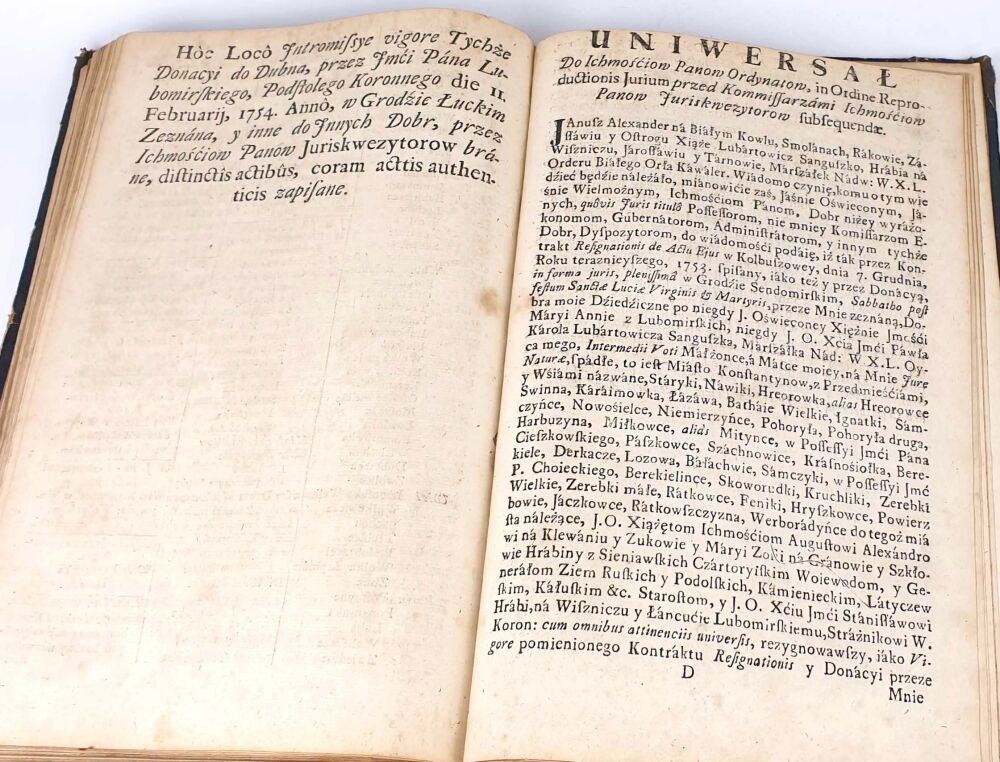 Hòc Locò Jntromiſsye vigore Tychże
Donacyi do Dubna, przez Jmći Pána Lu-
bomirſkiego, Podſtolego Koronnego die 11.
Februarij, 1754. Annò, w Grodźie Łuckim
Zeznána, y inne do Jnnych Dobr, przez
Ichmośćiow Panow Juriskwezytorow brá-
ne, diſtinctis actibûs, coram acttis authen-
ticis zapiſane.
UNIWERSAŁ
Do Ichmośćiow Panow Ordynatow, in Ordine Repro-
ductionis Jurium przed Kommiſſarzámi Ichmośćiow
Panow Juriskwezytorow subſequendæ.
JAnusz Alexander ná Białym Kowlu, Smolánach, Rákowie, Zá-
sławiu y Ostrogu Xiąże Lubártowicz Sanguſzko, Hrábia ná
Wiſzniczu, Jároſłáwiu y Tárnowie, Márſzáłek Nádw: W.X.L.
Orderu Białego Orłá Káwáler. Wiádomo czynię, komu o tym wie
dźieć będźie náleżáło, miánowićie záś, Jáśnie Oświeconym, Já-
śnie Wielmożnym, Ichmośćiom Pánom, Dobr niżey wyráżo-
nych, quôvis Juris titulô Poſſeſſorom, nie mniey Komiſſarzom E-
konomom, Gubernátorom, Adminiſtrátorom, y innym tychże
Dobr, Dyſpozytorom, do wiádomośći podáię, iż ták przez Kon-
trakt Reſignationis de Actu Ejus w Kolbuſzowey, dnia 7. Grudnia,
Roku teraznieyſzego, 1753. ſpiſány, iáko też y przez Donácyą,
in forma juris, pleniſſimâ w Grodźie Sendomirſkim, Sabbatho poſt
feſtum Sanctæ Luciæ Virginis & Martyris, przeze Mnie zeznáną, Do-
bra moie Dźiedźiczne po niegdy J. Oświeconey Xiężnie Jmośći
Máryi Annie z Lubomirſkich, niegdy J. O. Xćia Jmći Páwłá
Károla Lubártowiczá Sanguſzká, Márſzáłká Nád: W.X.L. Oy-
cá mego, Intermedii Voti Małżonce, á Mátce moiey, ná Mnie Jure
Naturæ, ſpádłe, to ieſt Miáſto Konſtántynow, z Przedmieśćiámi,
y Wśiámi názwáne, Stáryki, Náwiki, Hreorowka, alias Hreorowce
Swinna, Káráimowka, Łázáwa, Batháie Wielkie, Ignatki, Sám-
czyńce, Nowośielce, Niemierzyńce, Pohoryłá, Pohoryłá druga,
Hárbuzyna, Miłkowce, aliàs Mitynce, w Poſſeſſyi Jmći Pána
Cieſzkowſkiego, Páſzkowce, Száchnowice, Kráſnośiołká, Bere-
kiele, Derkacze, Lozowa, Báłachwie, Sámczyki, w Poſſeſſyi Jmć
P. Choieckiego, Berekielince, Skoworudki, Kruchliki, Zerebki
Wielkie, Zerebki máłe, Rátkowce, Feniki, Hryſzkowce, Powierz
bowie, Jáczkowce, Rátkowſzczyzna, Werborádyńce do tegoż miá
ſtá náleżące, J.O. Xiążętom Ichmośćiom Auguſtowi Alexándro
wi ná Klewániu y Zukowie y Máryi Zofii ná Gránowie y Szkło-
wie Hrábiny z Sieniawſkich Czártoryiſkim Woiewodom, y Ge-
nerałom Ziem Ruſkich y Podolſkich, Kámienieckim, Látyczew
ſkim, Káłuſkim &c. Stároſtom, y J. O. Xćiu Jmći Stániſławowi
Hrábi, ná Wiſzniczu y Łáncućie Lubomirſkiemu, Stráżnikowi W.
Koron: cum omnibus attinenciis univerſis, rezygnowawſzy, iáko Vi-
gore pomienionego Kontráktu Reſignationis y Donácyi przeze
D
Mnie